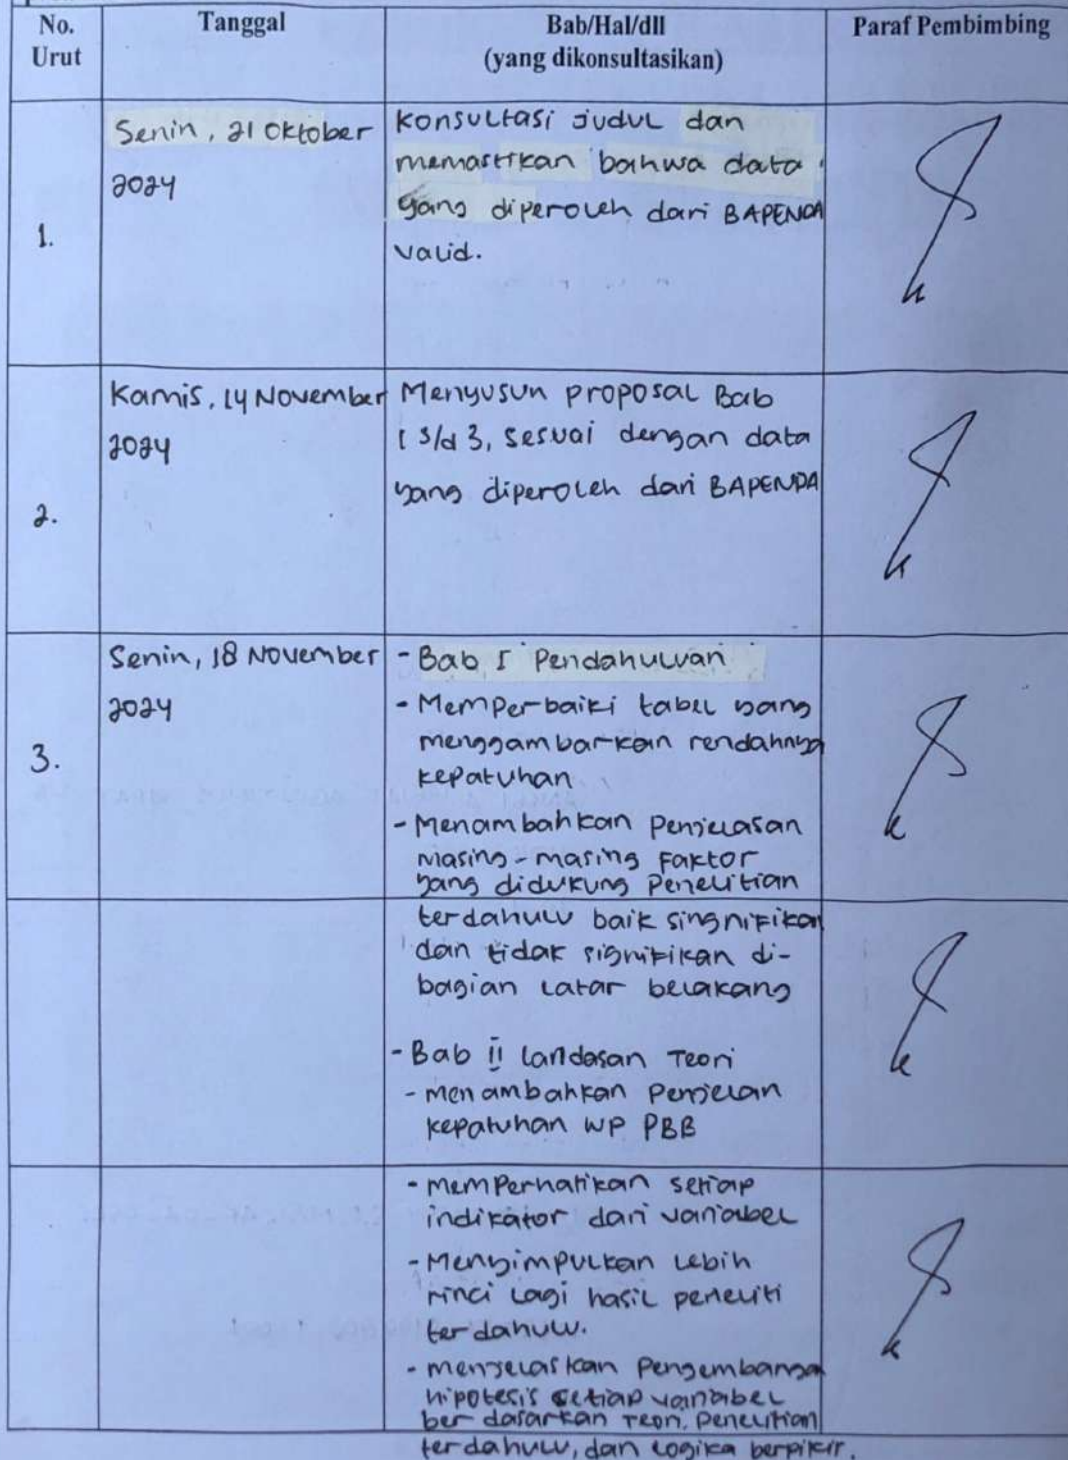 No.
Urut
Tanggal
Bab/Hal/dll
(yang dikonsultasikan)
Paraf Pembimbing
1.
Senin, 21 Oktober
2024
Konsultasi judul dan
memastikan bahwa data
yang diperoleh dari BAPENDA
valid.
2.
Kamis, 14 November
2024
Menyusun proposal Bab
1 s/d 3, sesuai dengan data
yang diperoleh dari BAPENDA
3.
Senin, 18 November
2024
- Bab I Pendahuluan
- Memperbaiki tabel yang
menggambarkan rendahnya
kepatuhan
- Menambahkan Penjelasan
masing-masing Faktor
yang didukung Penelitian
terdahulu baik singnifikan
dan tidak signifikan di-
bagian latar belakang
- Bab II Landasan Teori
- Menambahkan Penjelan
kepatuhan WP PBB
- memperhatikan setiap
indikator dari variabel
- Menyimpulkan lebih
rinci lagi hasil peneliti
terdahulu.
- menjelaskan Pengembangan
hipotesis setiap variabel
berdasarkan Teori, Penelitian
terdahulu, dan logika berpikir.